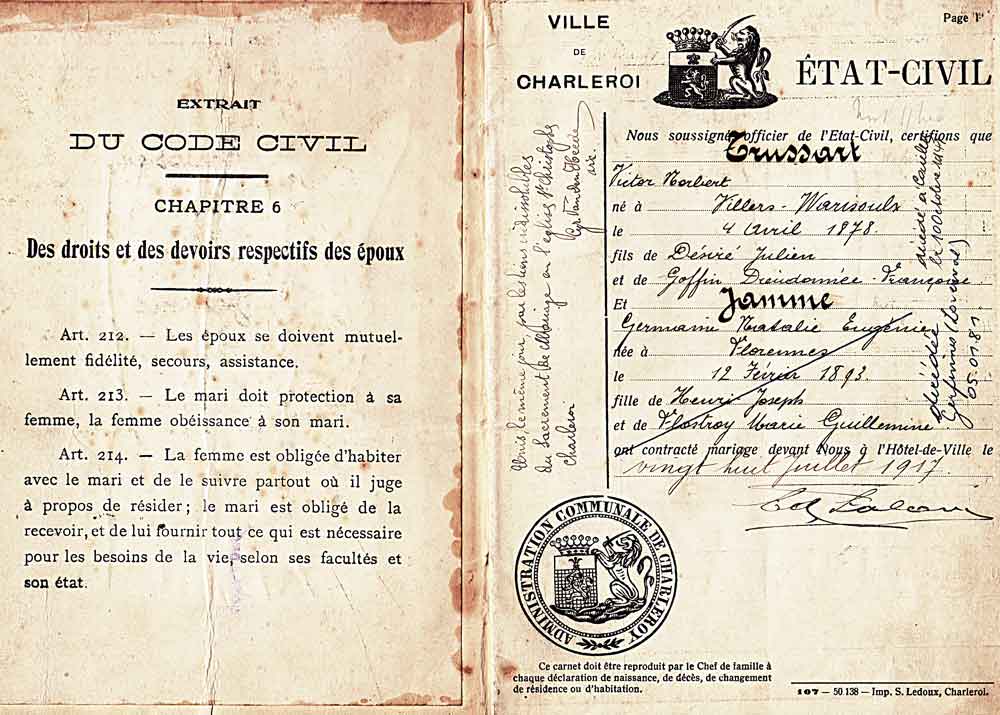 EXTRAIT
DU CODE CIVIL
CHAPITRE 6
Des droits et des devoirs respectifs des époux
Art. 212. — Les époux se doivent mutuel-
lement fidélité, secours, assistance.
Art. 213. — Le mari doit protection à sa
femme, la femme obéissance à son mari.
Art. 214. — La femme est obligée d'habiter
avec le mari et de le suivre partout où il juge
à propos de résider; le mari est obligé de la
recevoir, et de lui fournir tout ce qui est nécessaire
pour les besoins de la vie, selon ses facultés et
son état.
VILLE
DE
CHARLEROI
Page 1
ÉTAT-CIVIL
Nous soussigné officier de l'Etat-Civil, certifions que
Trussart
Victor Norbert
né à Villers-
le 4 Avril 1878.
fils de Désiré Julien
et de Goffin Dieudonnée-Françoise
Et Jamme
Germaine Natalie Eugénie
née à Florennes
le 12 Février 1893.
fille de Henri Joseph
et de Marie Guillemine
ont contracté mariage devant Nous à l'Hôtel-de-Ville le
vingt huit juillet 1917.
décédé à
le 10 Octobre
décédée
Gerpinnes
05.01.81
Unis le même jour par les liens indissolubles
du Sacrement de Mariage en l'église St Christophe
Charleroi
vic.
ADMINISTRATION COMMUNALE DE CHARLEROY
Ce carnet doit être reproduit par le Chef de famille à
chaque déclaration de naissance, de décès, de changement
de résidence ou d'habitation.
107 — 50.138 — Imp. S. Ledoux, Charleroi.